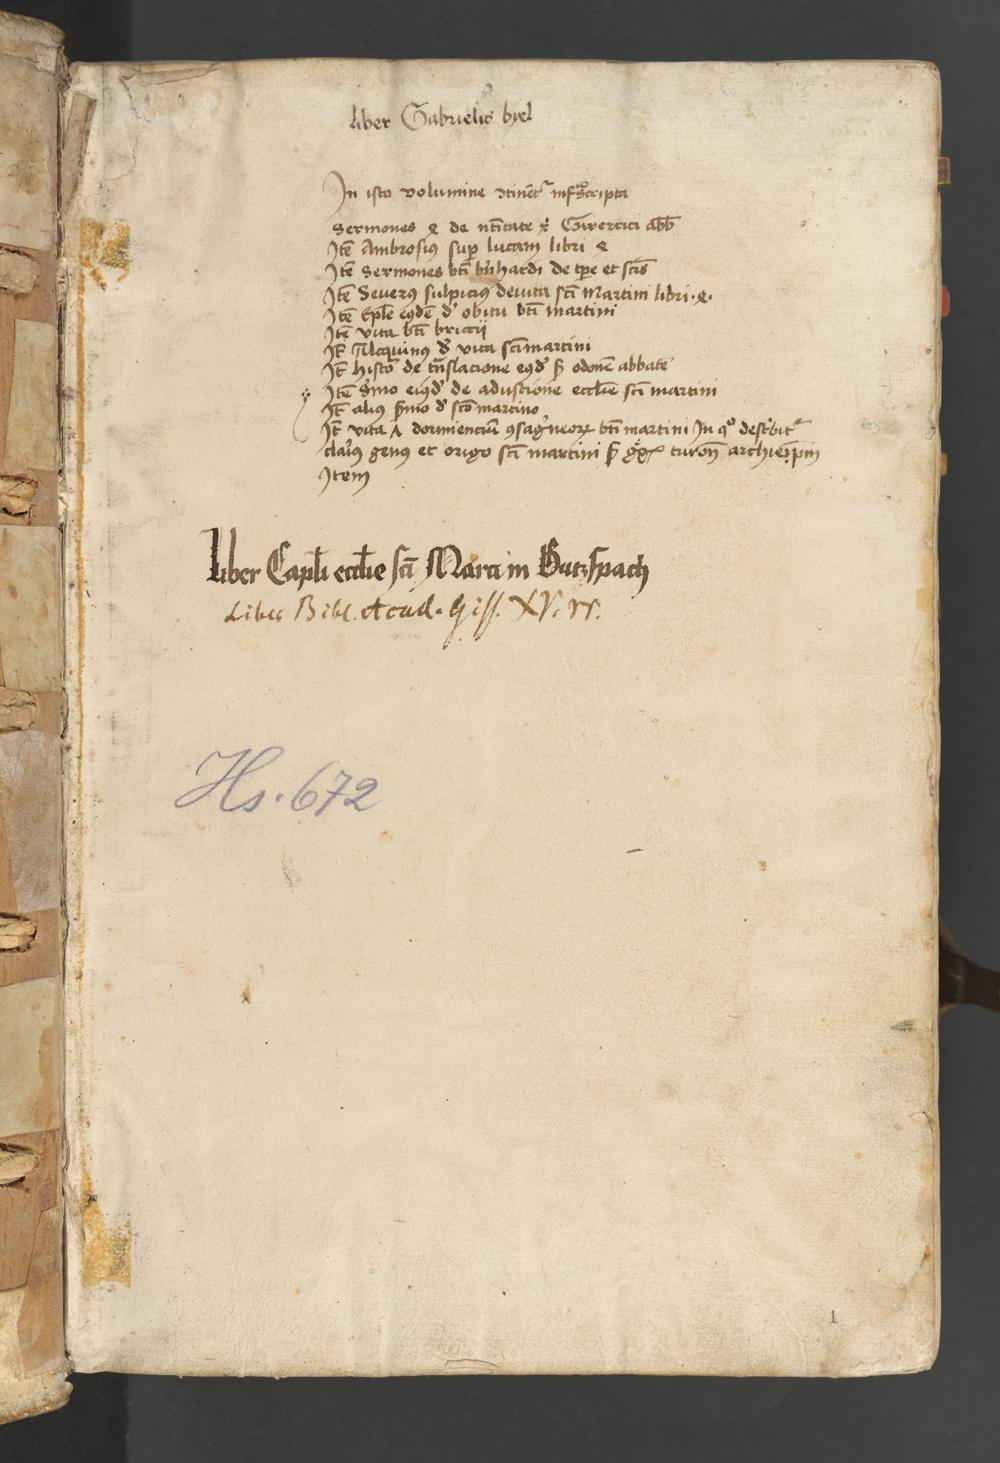 liber Gabrielis byel
In isto volumine ɔtinēt᷑ infͣscripta
Sermones de nītitate Gwerrici abb̄
Itē Ambrosiꝯ sup̱ lucam libri
Itē Sermones btī bn̄hardi de tp̱e et sc̄is
Itē Severꝯ sulpiciꝯ de vita sc̄i Martini libri
Itē Ep̄le eiꝯdē d' obitu btī martini
Itē vita btī briccij
It̄ Alcquinꝯ d' vita sc̄i martini
It̄ histo de tn̄slacione eiꝯd' odonē abbatē
Itē S'mo eiꝯd' de adustione eccl̄ie sc̄i martini
It̄ aliꝯ s'mo d' sc̄o martino
It̄ vita dormienciū ꝯsag'neoꝝ btī martini In qͦ desc'bit᷑
claiꝯ genꝯ et origo sc̄i martini turon̄ archiep̄m
Item
Liber Capl̄i eccl̄ie sc̄i Marci in Butzspach
Liber Bibl. Acad. Giss. XV.
Hs. 672
1